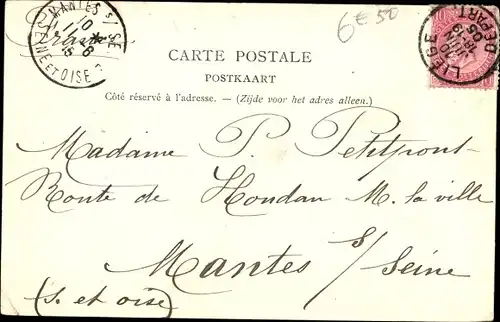 MANTES S/ SE
10
SEINE ET OISE
6€50
LIEGE 3
DEPART
CARTE POSTALE
POSTKAART
Côté réservé à l'adresse. — (Zijde voor het adres alleen.)
Madame P. Petitpont
Route de Houdan M. la ville
Mantes s/ Seine
(S. et oise)